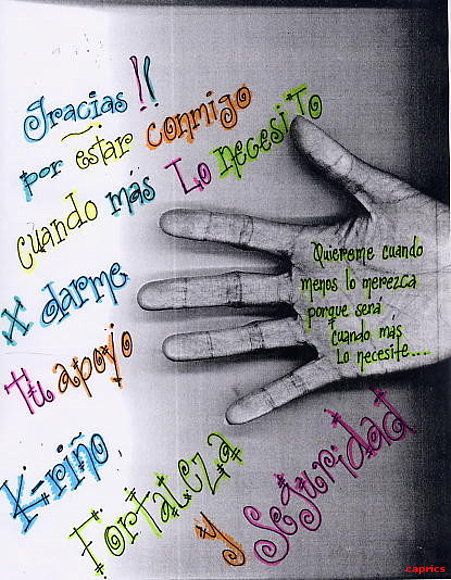 Gracias!!
por estar conmigo
cuando más Lo necesito
X darme
tu apoyo
K-riño
Fortaleza
y Seguridad
Quiereme cuando
menos lo merezca
porque será
cuando más
Lo necesite....
caprics